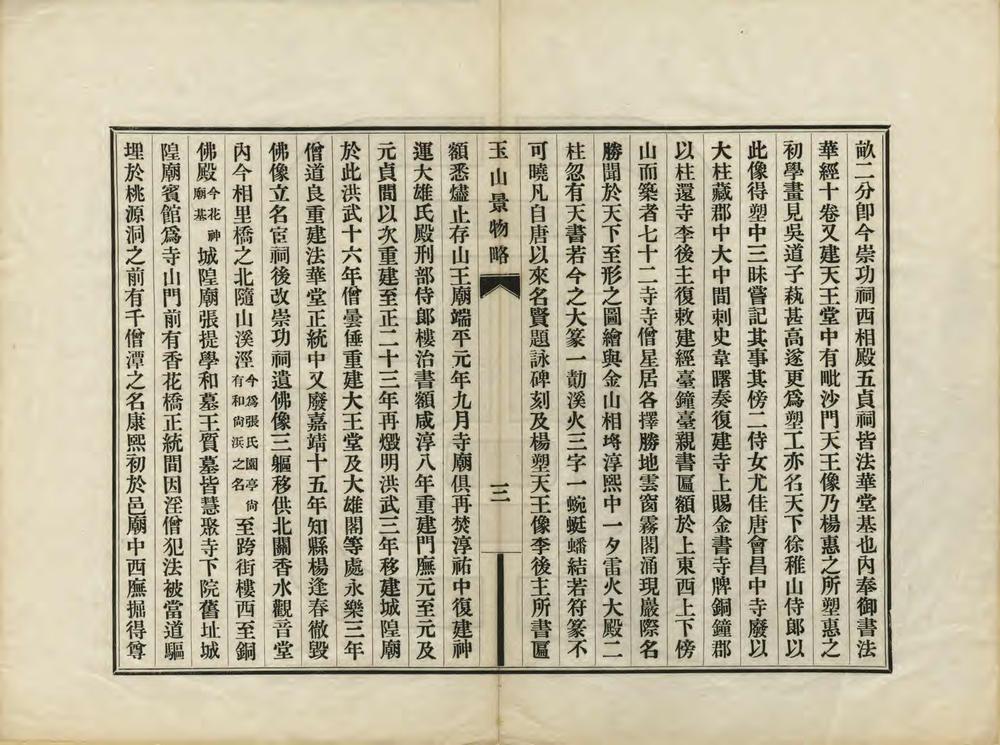 畝二分卽今崇功祠西相殿五貞祠皆法華堂基也內奉御書法
華經十卷又建天王堂中有毗沙門天王像乃楊惠之所塑惠之
初學畫見吳道子蓺甚高遂更爲塑工亦名天下徐稚山侍郞以
此像得塑中三昧嘗記其事其傍二侍女尤佳唐會昌中寺廢以
大柱藏郡中大中間刺史韋曙奏復建寺上賜金書寺牌銅鐘郡
以柱還寺李後主復敕建經臺鐘臺親書匾額於上東西上下傍
山而築者七十二寺寺僧星居各擇勝地雲窗霧閣涌現巖際名
勝聞於天下至形之圖繪與金山相埒淳熙中一夕雷火大殿二
柱忽有天書若今之大篆一勣溪火三字一蜿蜒蟠結若符篆不
可曉凡自唐以來名賢題詠碑刻及楊塑天王像李後主所書匾
玉山景物略
三
額悉燼止存山王廟端平元年九月寺廟俱再焚淳祐中復建神
運大雄氏殿刑部侍郞樓治書額咸淳八年重建門廡元至元及
元貞間以次重建至正二十三年再燬明洪武三年移建城隍廟
於此洪武十六年僧曇倕重建大王堂及大雄閣等處永樂三年
僧道良重建法華堂正統中又廢嘉靖十五年知縣楊逢春徹毀
佛像立名宦祠後改崇功祠遺佛像三軀移供北關香水觀音堂
內今相里橋之北隨山溪涇今爲張氏園亭尙有和尙浜之名至跨街樓西至銅
佛殿今花神廟基城隍廟張提學和墓王質墓皆慧聚寺下院舊址城
隍廟賓館爲寺山門前有香花橋正統間因淫僧犯法被當道驅
埋於桃源洞之前有千僧潭之名康熙初於邑廟中西廡掘得尊